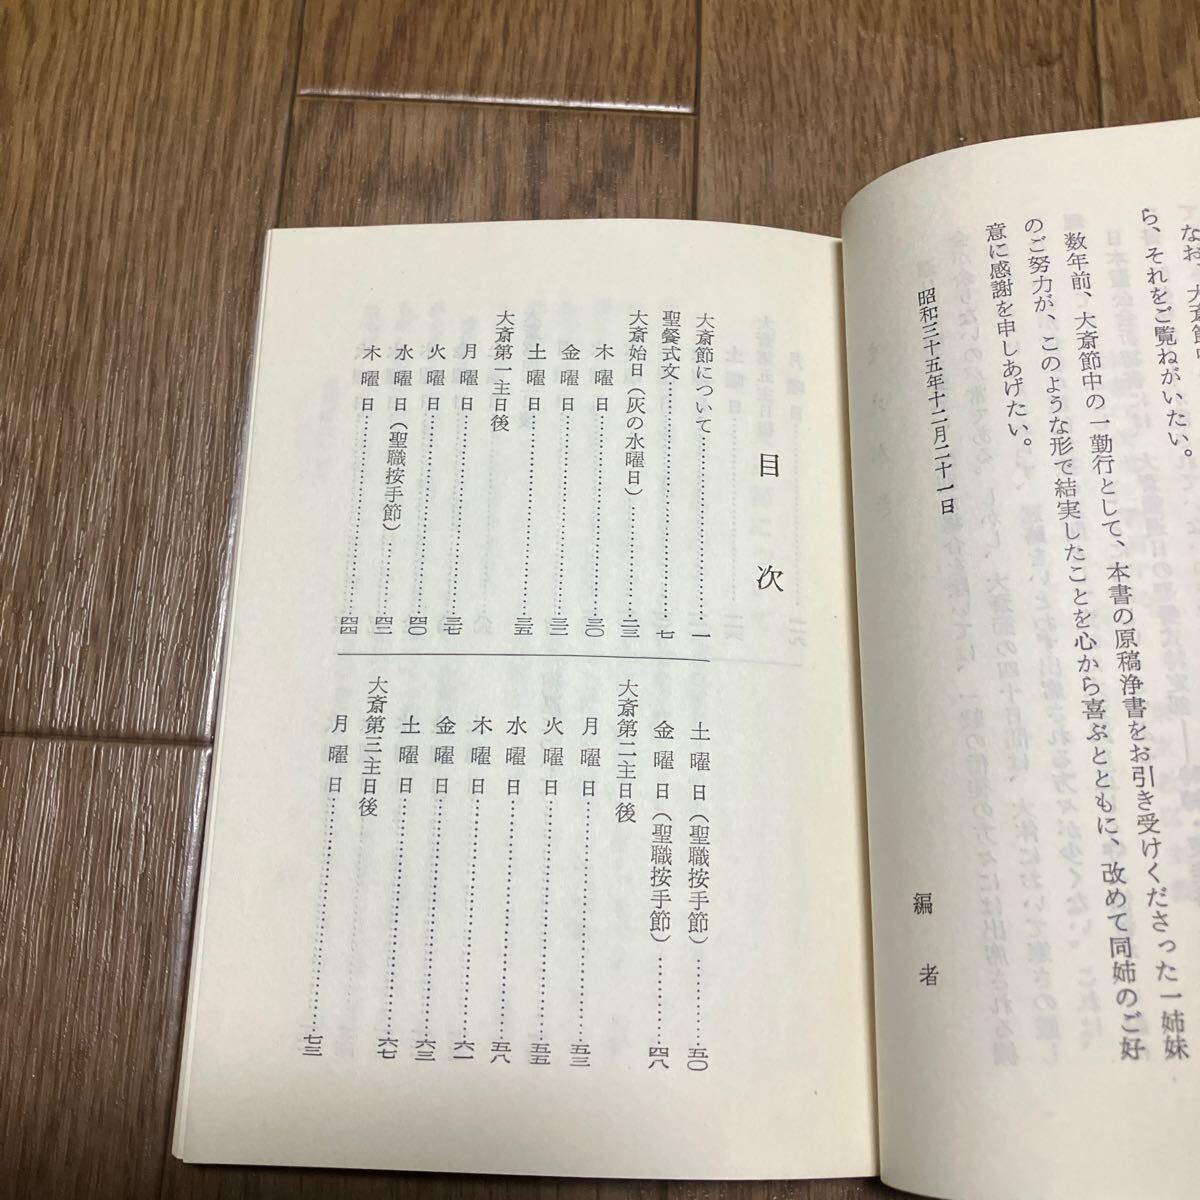 なお、大斎節中
ら、それをご覧ねがいたい。
数年前、大斎節中の一勤行として、本書の原稿浄書をお引き受けくださった一姉妹
のご努力が、このような形で結実したことを心から喜ぶとともに、改めて同姉のご好
意に感謝を申しあげたい。
昭和三十五年十二月二十一日
編者
目次
大斎節について…………一
聖餐式文…………七
大斎始日(灰の水曜日)…………二三
木曜日…………三〇
金曜日…………三三
土曜日…………三五
大斎第一主日後
月曜日…………三七
火曜日…………四〇
水曜日(聖職按手節)…………四二
木曜日…………四四
土曜日(聖職按手節)…………五〇
金曜日(聖職按手節)…………四八
大斎第二主日後
月曜日…………五三
火曜日…………五五
水曜日…………五八
木曜日…………六一
金曜日…………六三
土曜日…………六七
大斎第三主日後
月曜日…………七三